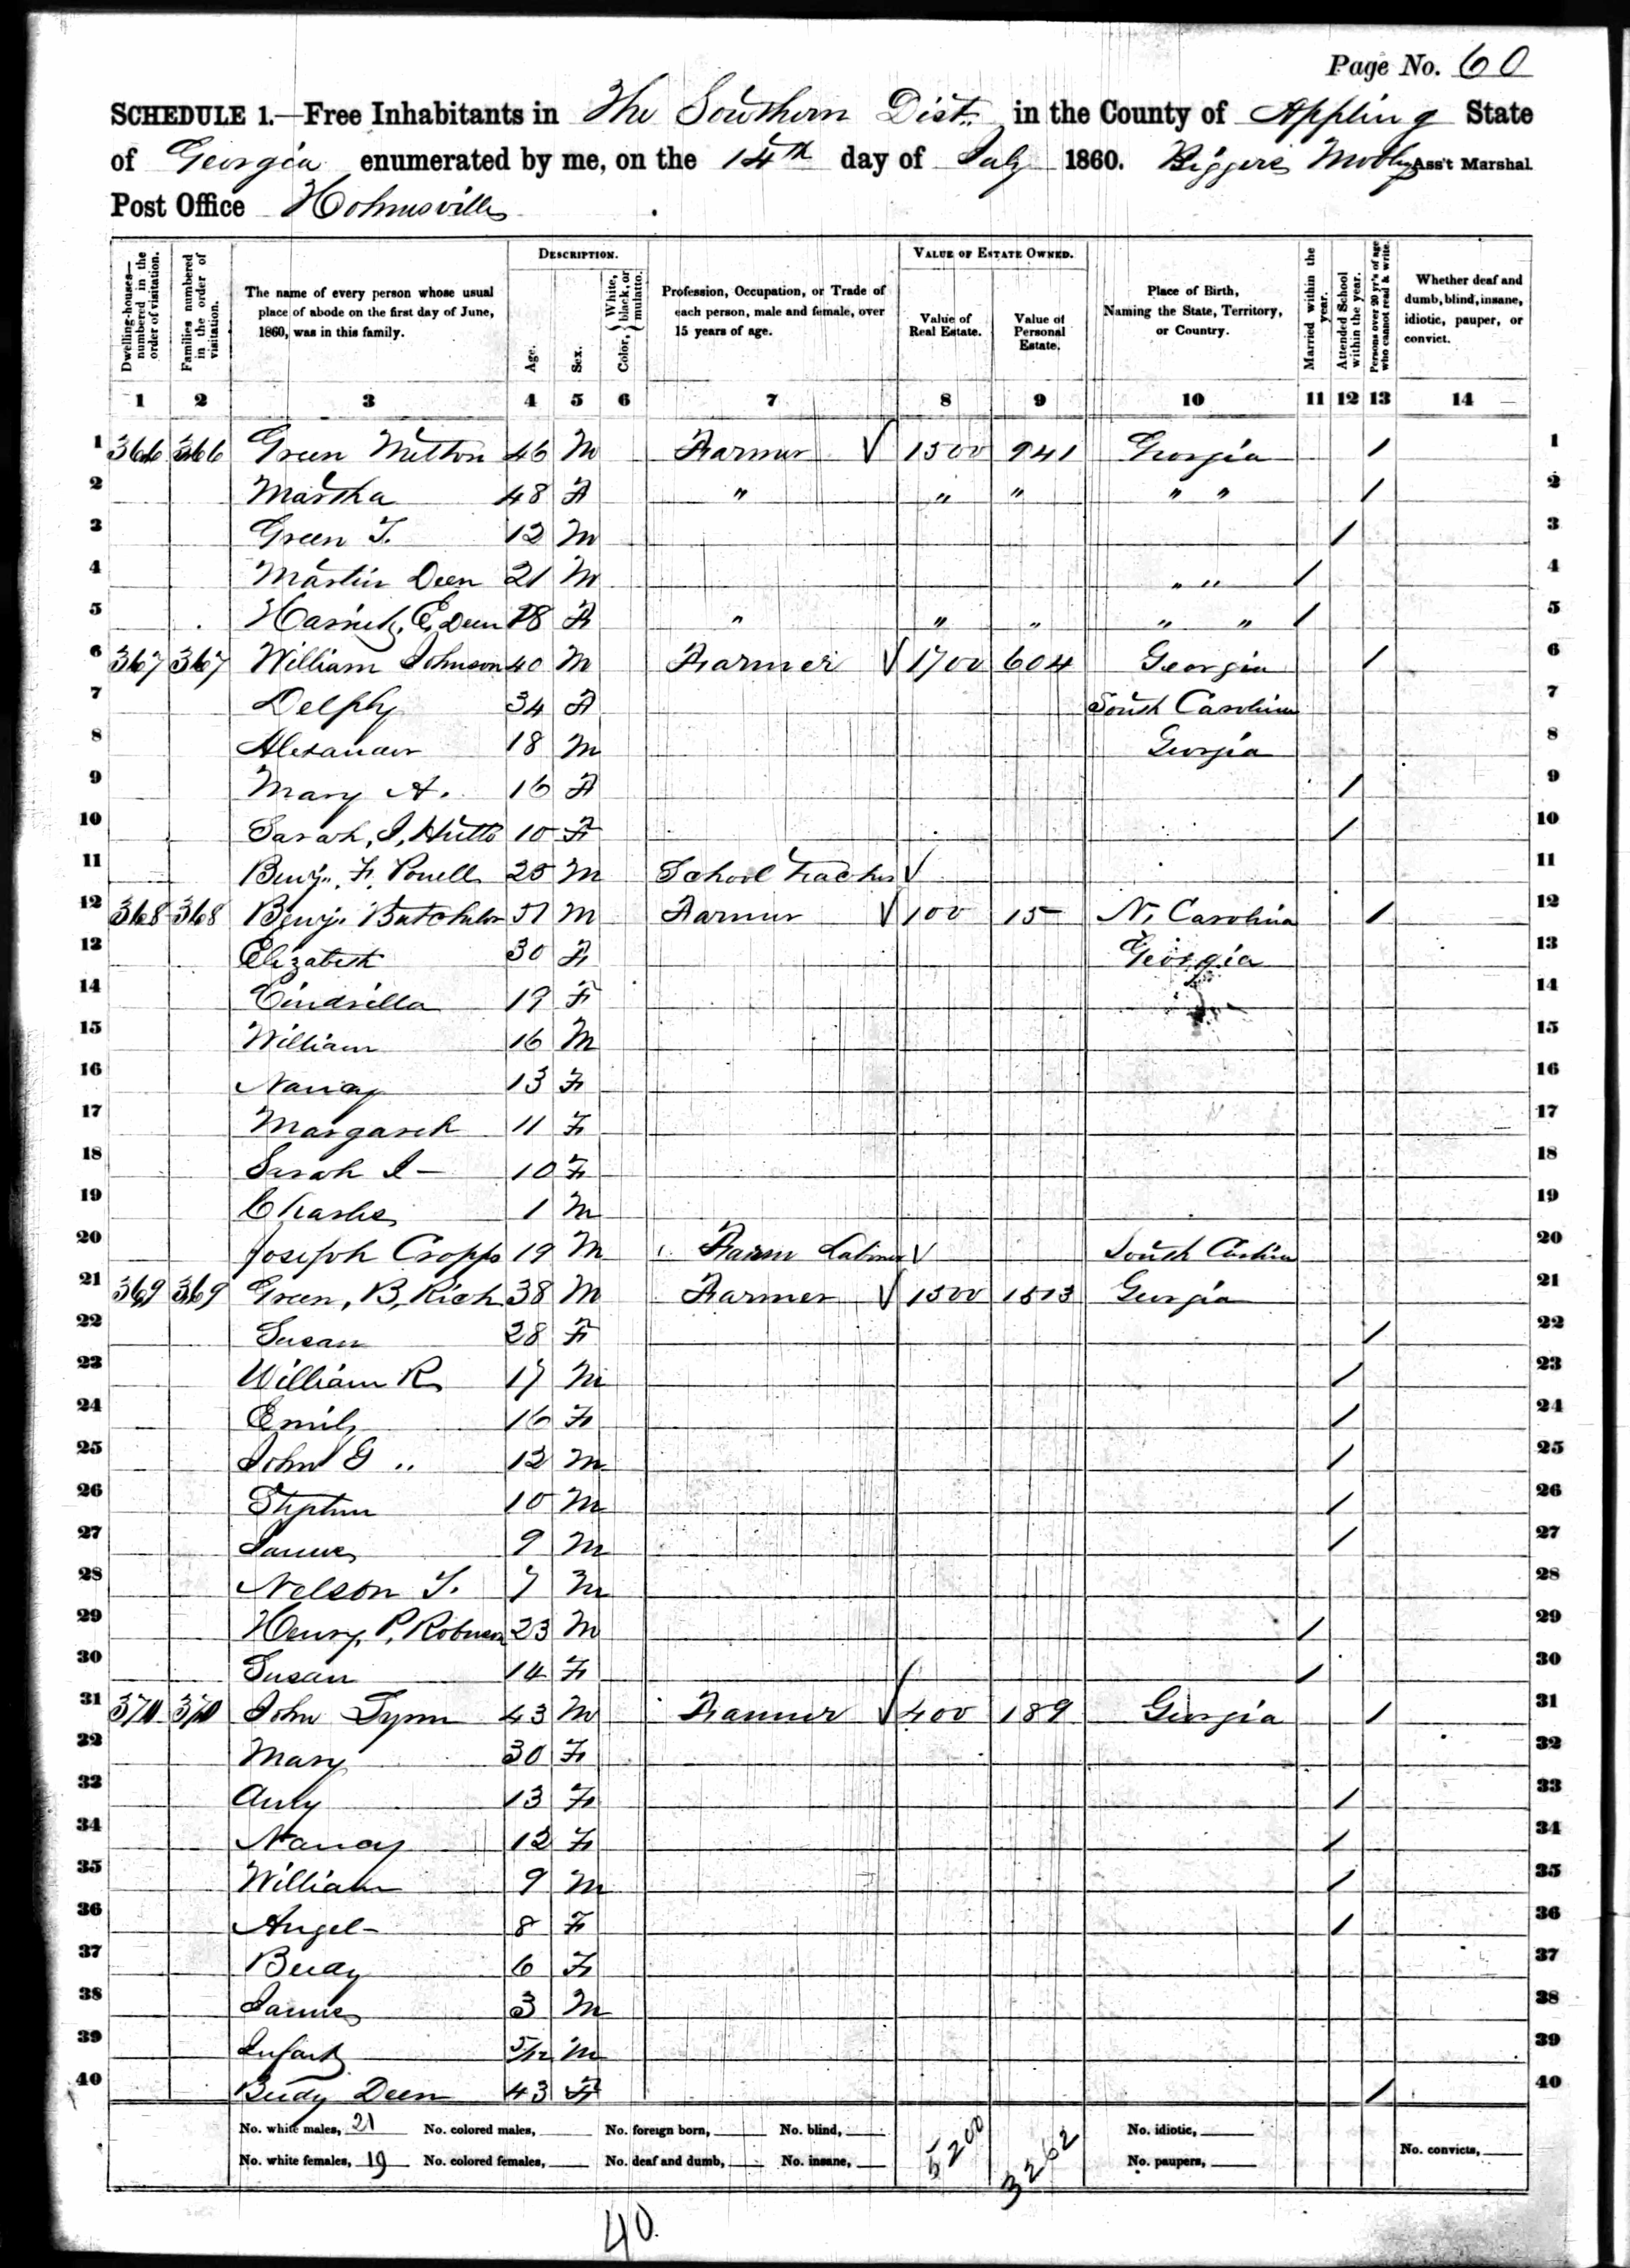 Page No. 60
SCHEDULE 1.—Free Inhabitants in The Southern Dist. in the County of Appling State
of Georgia enumerated by me, on the 14th day of July 1860. Biggers Mobly Ass't Marshal.
Post Office Holmesville
Dwelling-houses—numbered in the order of visitation.
Families numbered in the order of visitation.
The name of every person whose usual place of abode on the first day of June, 1860, was in this family.
DESCRIPTION.
Age.
Sex.
Color, { White, black, or mulatto.
Profession, Occupation, or Trade of each person, male and female, over 15 years of age.
VALUE OF ESTATE OWNED.
Value of Real Estate.
Value of Personal Estate.
Place of Birth, Naming the State, Territory, or Country.
Married within the year.
Attended School within the year.
Persons over 20 yr's of age who cannot read & write.
Whether deaf and dumb, blind, insane, idiotic, pauper, or convict.
1 2 3 4 5 6 7 8 9 10 11 12 13 14
1 366 366 Green Melton 46 M Farmer √ 1500 941 Georgia / 1
2 Martha 48 F " " " " " / 2
3 Green T. 12 M / 3
4 Martin Deen 21 M " " / 4
5 Harriet, E, Deen 18 F " " " " " / 5
6 367 367 William Johnson 40 M Farmer √ 1700 604 Georgia / 6
7 Delphy 34 F South Carolina 7
8 Alexander 18 M Georgia 8
9 Mary A. 16 F / 9
10 Sarah, J, Hutto 10 F / 10
11 Benj. F. Powell 25 M School Teacher √ 11
12 368 368 Benj. Batchler 51 M Farmer √ 100 15 N. Carolina / 12
13 Elizabeth 30 F Georgia 13
14 Cindrilla 19 F 14
15 William 16 M 15
16 Nancy 13 F 16
17 Margaret 11 F 17
18 Sarah J — 10 F 18
19 Charles 1 M 19
20 Joseph Cropps 19 M Farm Laborer √ South Carolina 20
21 369 369 Green, B, Rich 38 M Farmer √ 1500 1513 Georgia 21
22 Susan 28 F / 22
23 William R 17 M / 23
24 Emily 16 F / 24
25 John G .. 12 M / 25
26 Stephen 10 M / 26
27 James 9 M / 27
28 Nelson T. 7 M 28
29 Henry, P, Robuson 23 M / 29
30 Susan 14 F / 30
31 370 370 John Lynn 43 M Farmer √ 400 189 Georgia / 31
32 Mary 30 F 32
33 13 F / 33
34 Nancy 12 F / 34
35 William 9 M / 35
36 Angel 8 F / 36
37 6 F 37
38 James 3 M 38
39 Infant 5/12 M 39
40 Deen 43 F / 40
No. white males, 21 No. colored males, No. foreign born, No. blind, 5200 3262 No. idiotic,
No. white females, 19 No. colored females, No. deaf and dumb, No. insane, No. paupers, No. convicts,
40